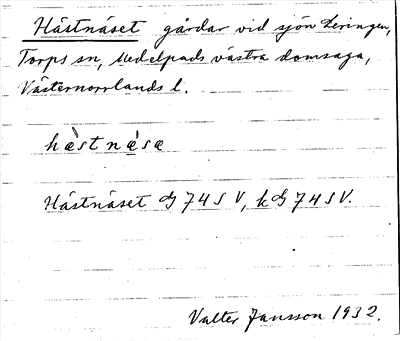 Hästnäset gårdar vid sjön Leringen,
Torps sn, Medelpads västra domsaga,
Västernorrlands l.
hæ̀stnæ̀sæ
Hästnäset GS 74 SV, kG 74 SV.
Valter Jansson 1932.